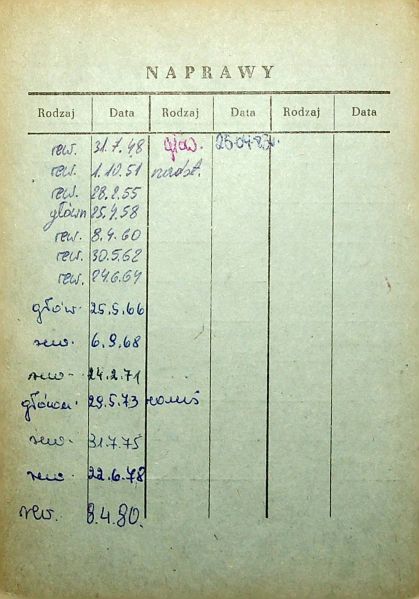 NAPRAWY
Rodzaj Data Rodzaj Data Rodzaj Data
rew. 31.7.48 głów.
rew. 1.10.51
rew. 28.2.55
główn 25.4.58
rew. 8.4.60
rew. 30.5.62
rew. 24.6.64
głów. 25.5.66
rew. 6.9.68
rew. 24.2.71
główn. 29.5.73
rew. 31.7.75
rew. 22.6.78
rew. 8.4.80.